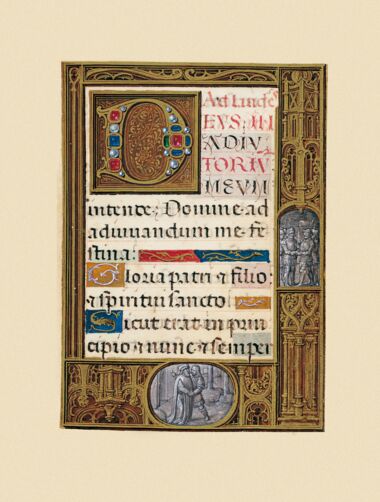 Ad laudes
DEVS: IN
ADIV
TORIV
MEVM
intende: Domine ad
adiuuandum me fe
stina:
Gloria patri ⁊ filio:
⁊ spiritui sancto
Sicut erat in prin
cipio ⁊ nunc ⁊ semper